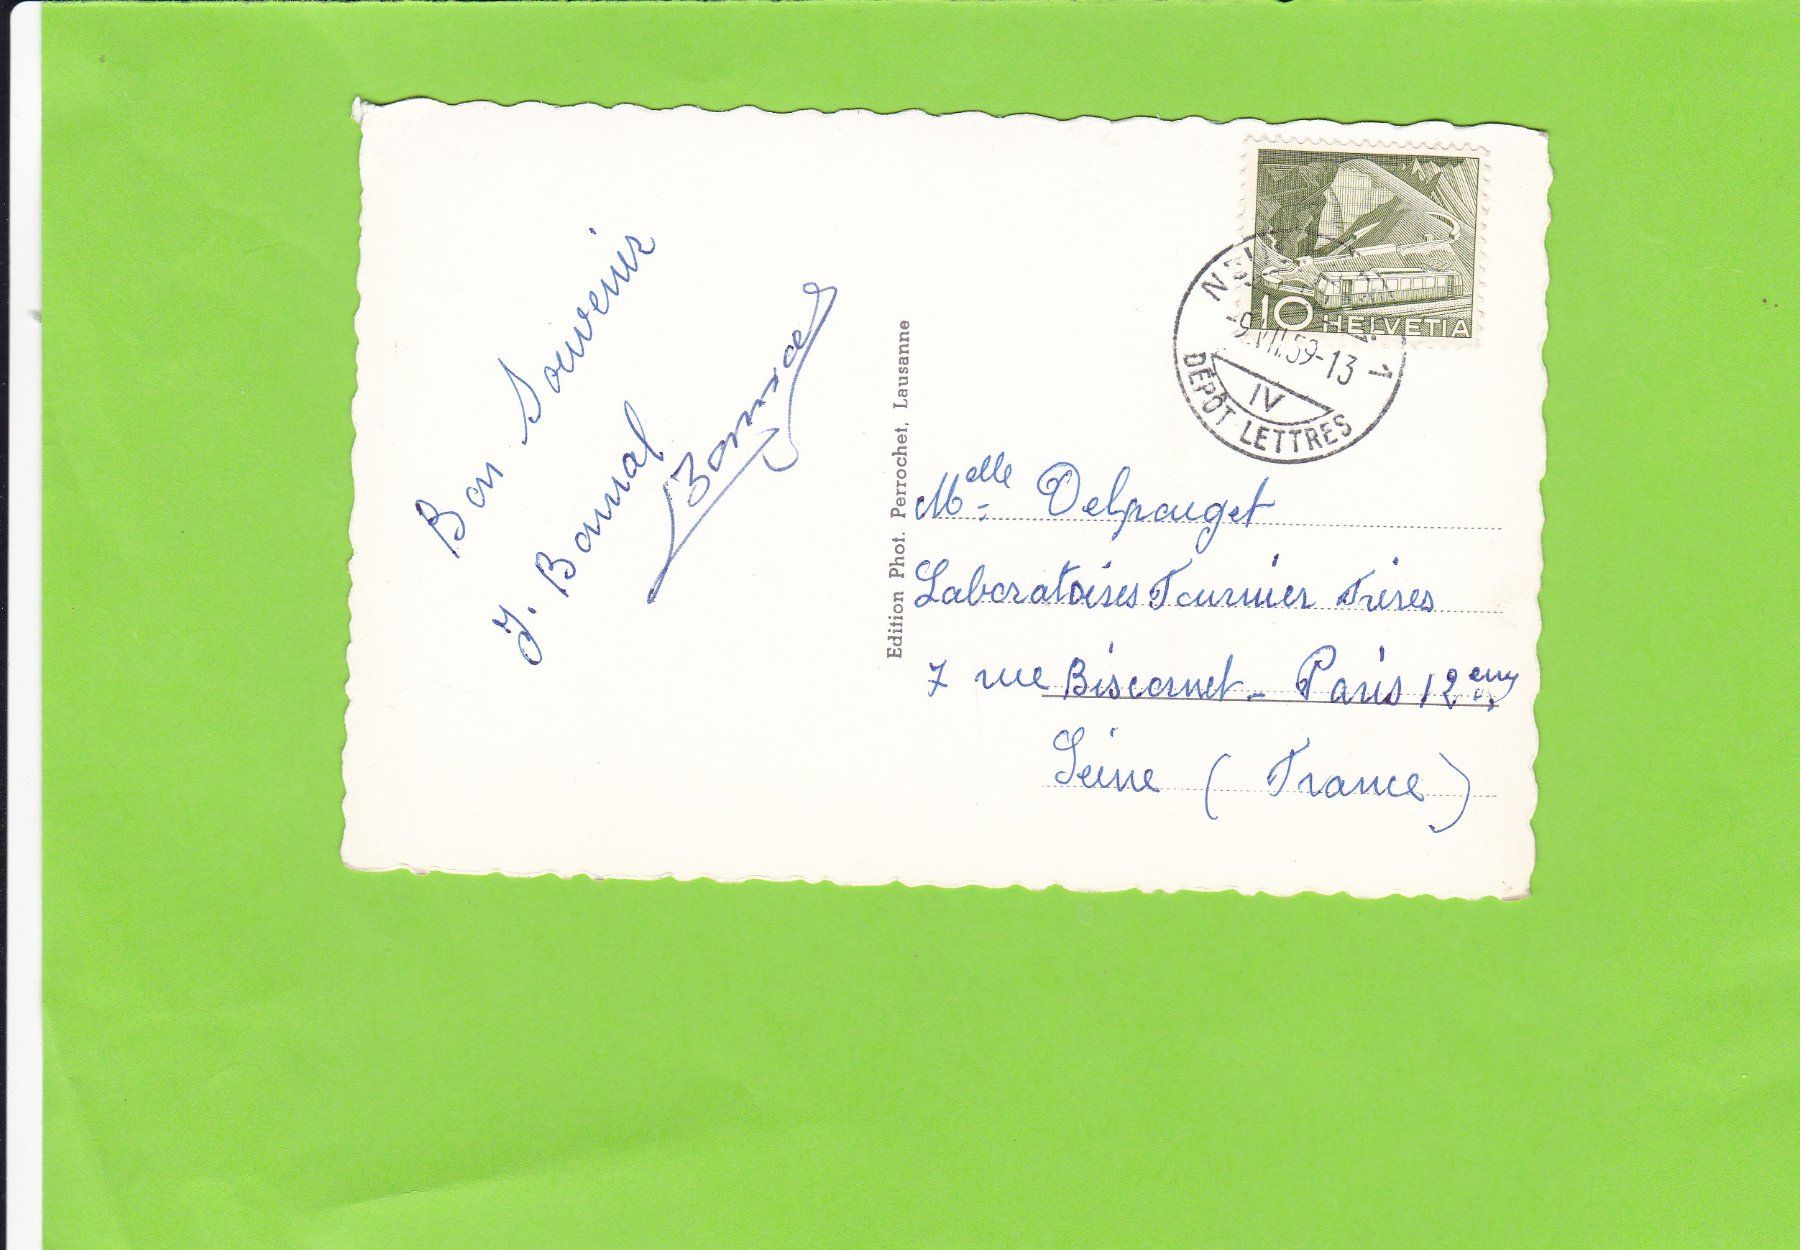 Bon Souvenir
J. Bonnal
Edition Phot. Perrochet, Lausanne
10 HELVETIA
-9.VII.59-13
1
IV
DÉPÔT LETTRES
Melle Delpouget
Laboratoires Fournier Frères
7 rue Biscornet - Paris 12eme
Seine (France)